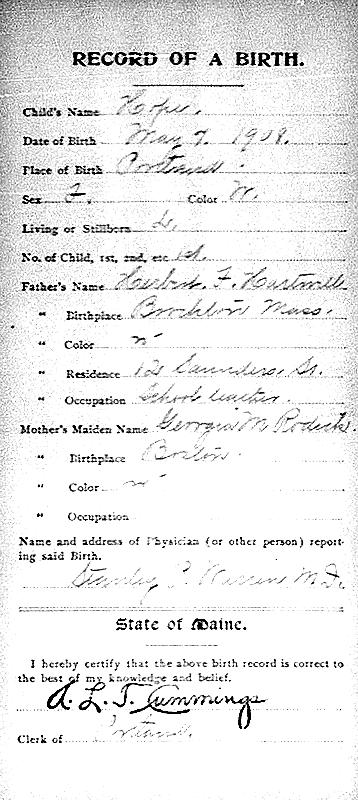 RECORD OF A BIRTH.
Child's Name Hope.
Date of Birth May 7. 1908.
Place of Birth Portland.
Sex F. Color W.
Living or Stillborn L.
No. of Child, 1st, 2nd, etc 1st.
Father's Name Herbert F. Hartwell
" Birthplace Brockton Mass.
" Color W
" Residence 12 Saunders St.
" Occupation School teacher.
Mother's Maiden Name Georgia M
" Birthplace Boston.
" Color W
" Occupation
Name and address of Physician (or other person) report-
ing said Birth.
Stanley P. Warren M.D.
State of Maine.
I hereby certify that the above birth record is correct to
the best of my knowledge and belief.
A. L. T. Cummings
Clerk of Portland.